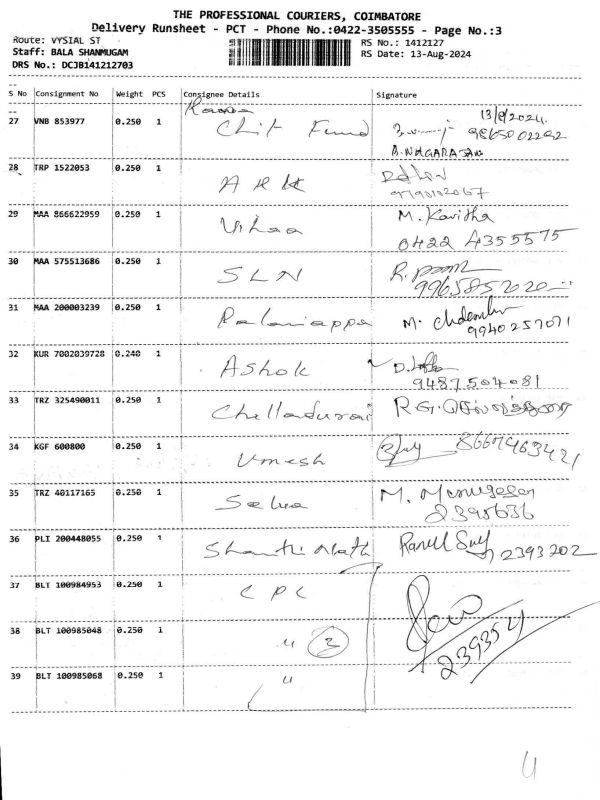 THE PROFESSIONAL COURIERS, COIMBATORE
Delivery Runsheet - PCT - Phone No.:0422-3505555 - Page No.:3
Route: VYSIAL ST RS No.: 1412127
Staff: BALA SHANMUGAM RS Date: 13-Aug-2024
DRS No.: DCJB141212703
S No Consignment No Weight PCS Consignee Details Signature
13/8/2024
27 VNB 853977 0.250 1 Chit Fund
B. NAGARAJAN
28 TRP 1522053 0.250 1 ARK
29 MAA 866622959 0.250 1 M. Kavitha
0422 4355575
30 MAA 575513686 0.250 1 SLN
31 MAA 200003239 0.250 1 Palaniappa
9940257071
32 KUR 7002039728 0.240 1 Ashok
9487504081
33 TRZ 325490011 0.250 1 Chelladurai
34 KGF 600800 0.250 1 Umesh
35 TRZ 40117165 0.250 1 Selva M. Murugesan
2395636
36 PLI 200448055 0.250 1 Shanthi Nath 2393202
37 BLT 100984953 0.250 1 CPC
38 BLT 100985048 0.250 1 " 3
239354
39 BLT 100985068 0.250 1 "
4